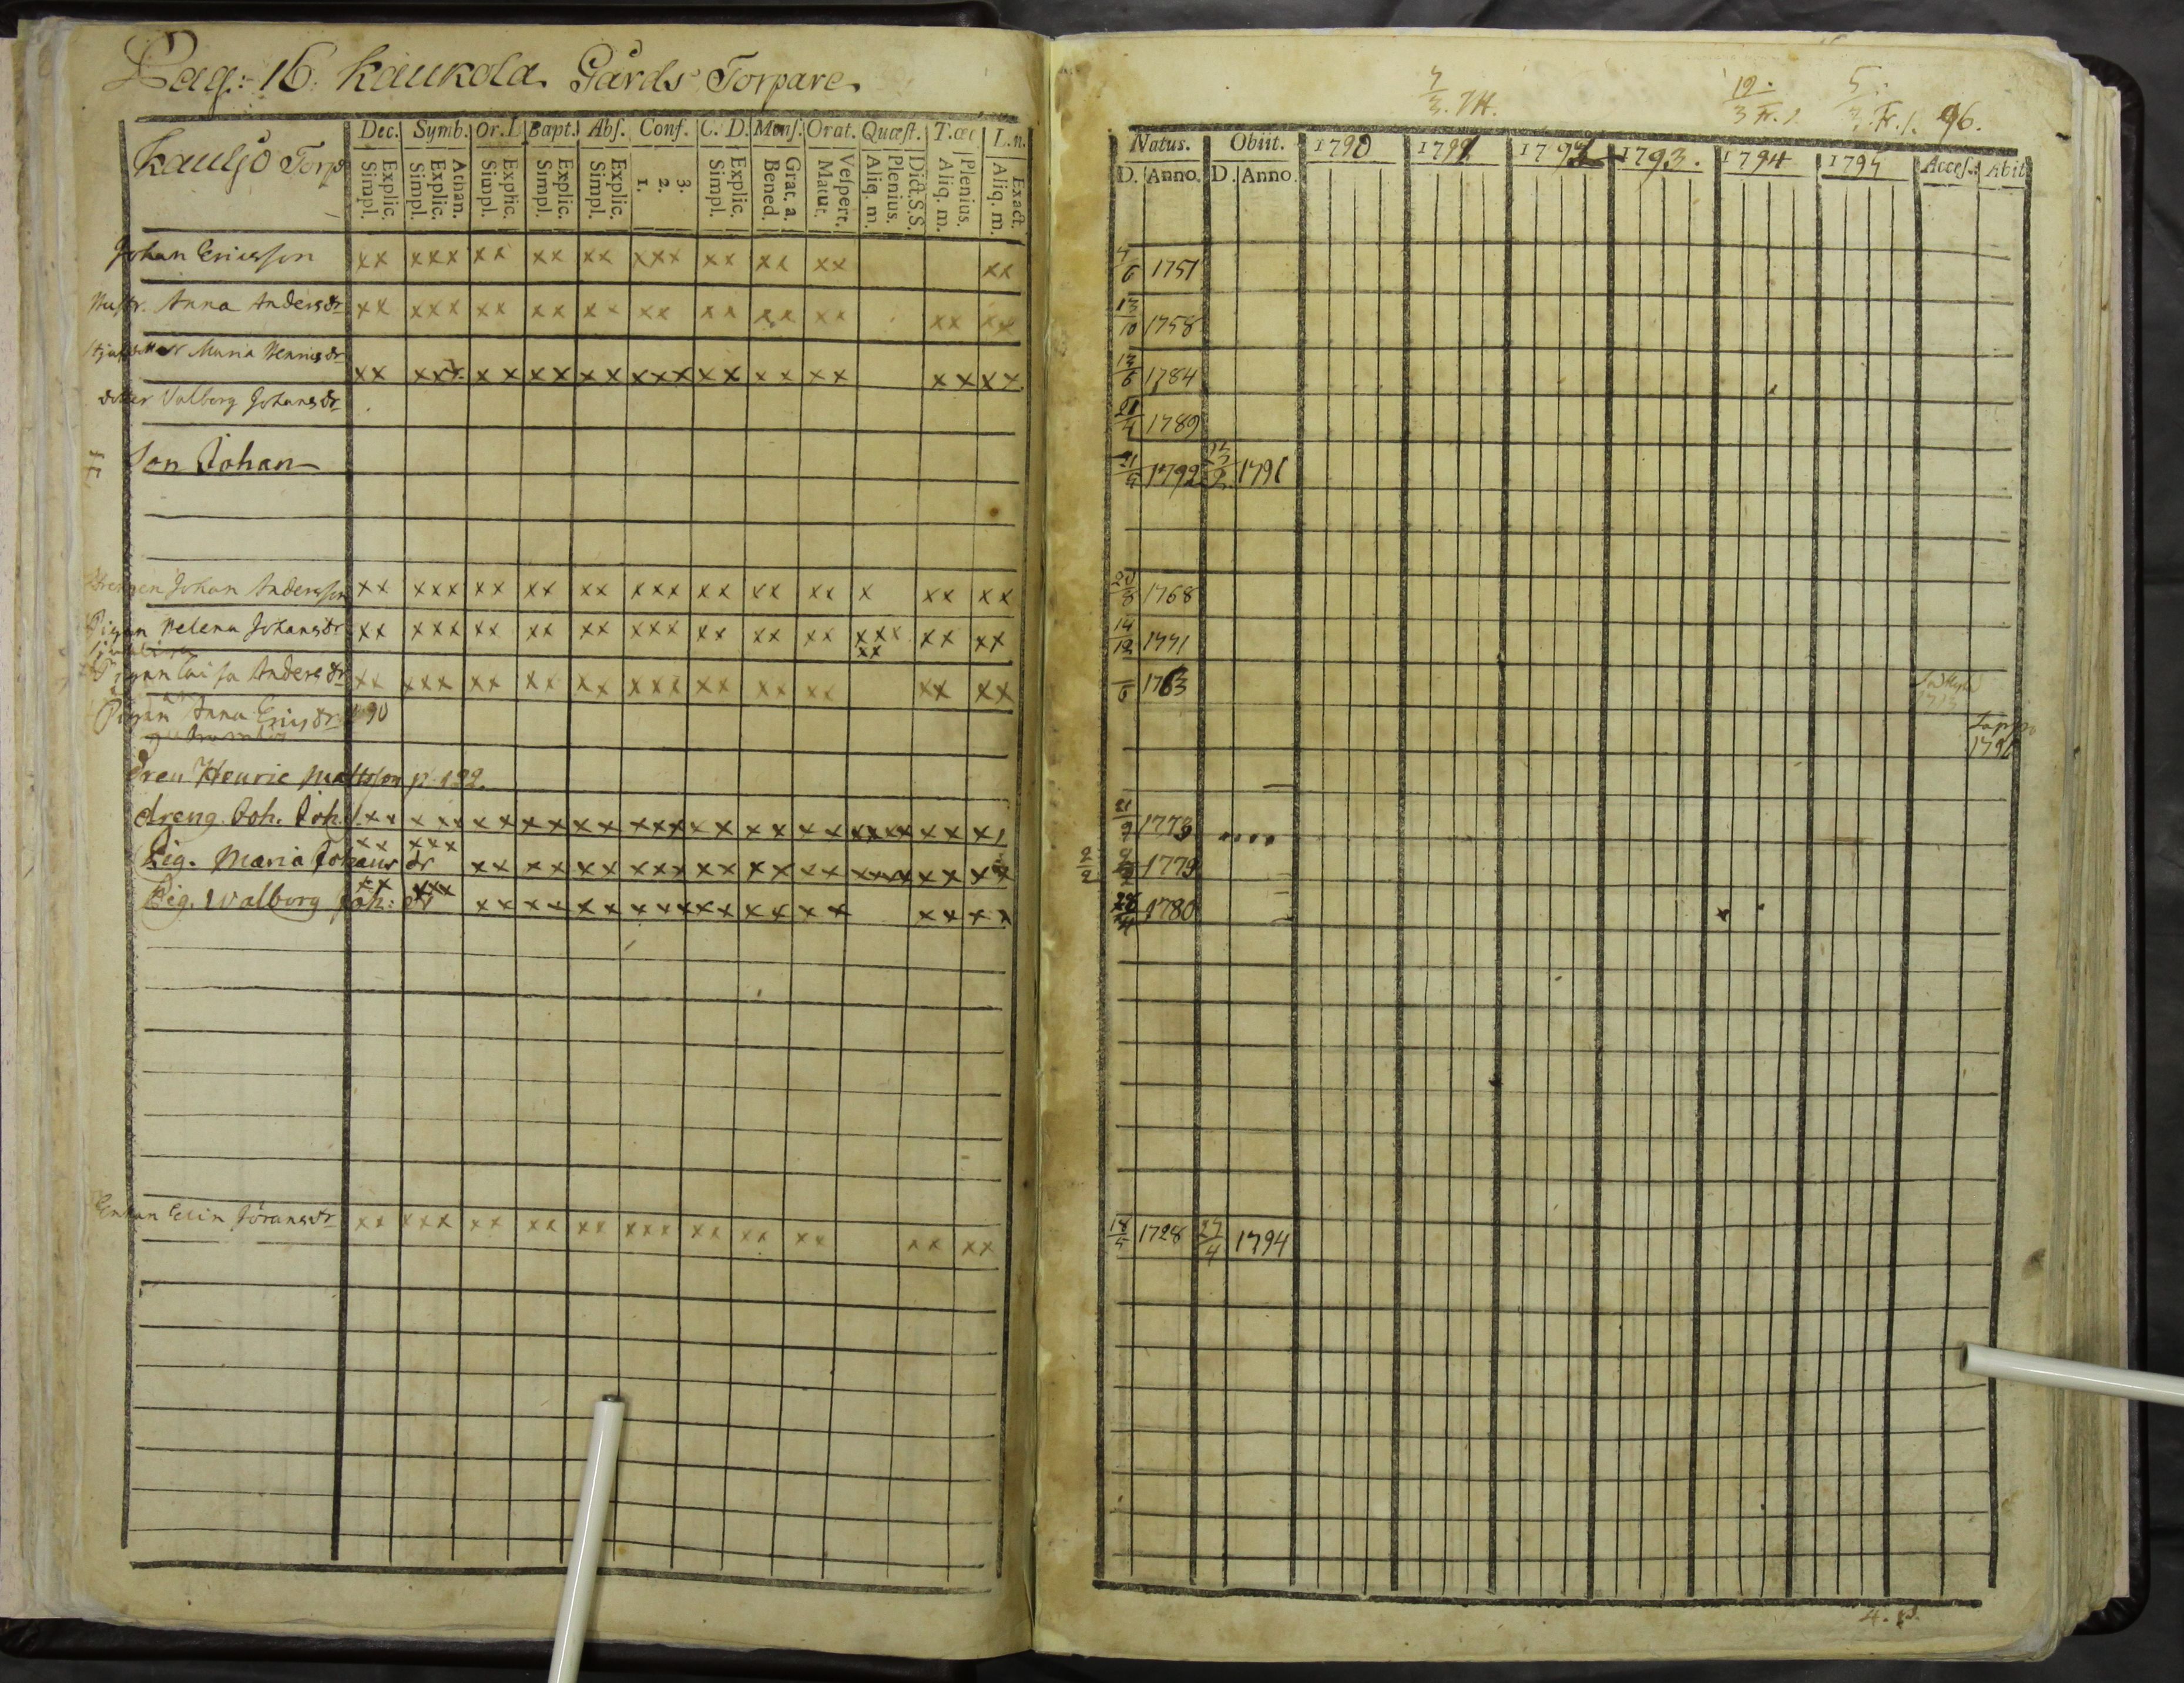 Pag: 16. Kaukola Gårds Torpare.
Dec. Symb. Or. D. Bapt. Abs. Conf. C. D. Mens. Orat. Quæst. T. œc. L. n.
Explic. Simpl. Athan. Explic. Simpl. Explic. Simpl. Explic. Simpl. Explic. Simpl. 3. 2. 1. Explic. Simpl. Grat. a. Bened. Vespert. Matut. Dict. S. S. Plenius. Aliq. m. Plenius. Aliq. m. Exact. Aliq. m.
Torp
Johan Ericsson xx xxx xx xx xx xxx xx xx xx xx
Hustr. Anna Andersdr xx xxx xx xx xx xx xx xx xx xx xx
Maria Henricsdr xx xxx xx xx xx xxx xx xx xx xx xx
dotter Valborg Johansdr
Son Johan
Drengen Johan Andersson xx xxx xx xx xx xxx xx xx xx x xx xx
Pigan Helena Johansdr xx xxx xx xx xx xxx xx xx xx xxx xx xx xx
Pigan Caisa Andersdr xx xxx xx xx xx xxx xx xx xx xx xx
Pigan Anna Ericsdr 90
Dren Henric Mattsson p. 122.
dreng Joh. Joh. xx xxx xx xx xx xxx xx xx xx xxxx xx x
Pig. Maria Johans dr xx xxx xx xx xx xxx xx xx xx xxxx xx xx
Pig. Walborg Joh: dr xx xxx xx xx xx xxx xx xx xx xx xx
Enkan Elin Jöransdr xx xxx xx xx xx xxx xx xx xx xx xx
7/3. 12/3 Fr. 1. Fr. 1. 96.
Natus. Obiit. 1790 1791 1792 1793. 1794 1795 Access. Abit.
D. Anno. D. Anno.
6 1751
13/10 1758
13/6 1784
1789
1792 1791
8 1768
14/12 1771
6 1763
1791
21/9 1773
2/2 1779
28 1780
18/5 1728 27/4 1794